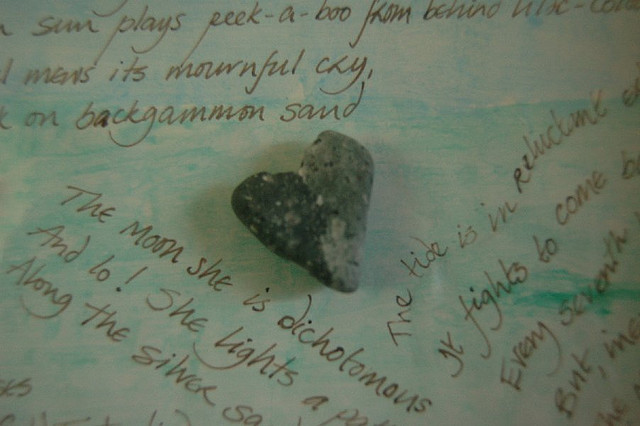 sun plays peek-a-boo from behind lilac-
mews its mournful cry,
on backgammon sand
The Moon she is dichotomous
And lo! She lights a
Along the silver
The tide is in reluctant
It fights to come
Every seventh
But,